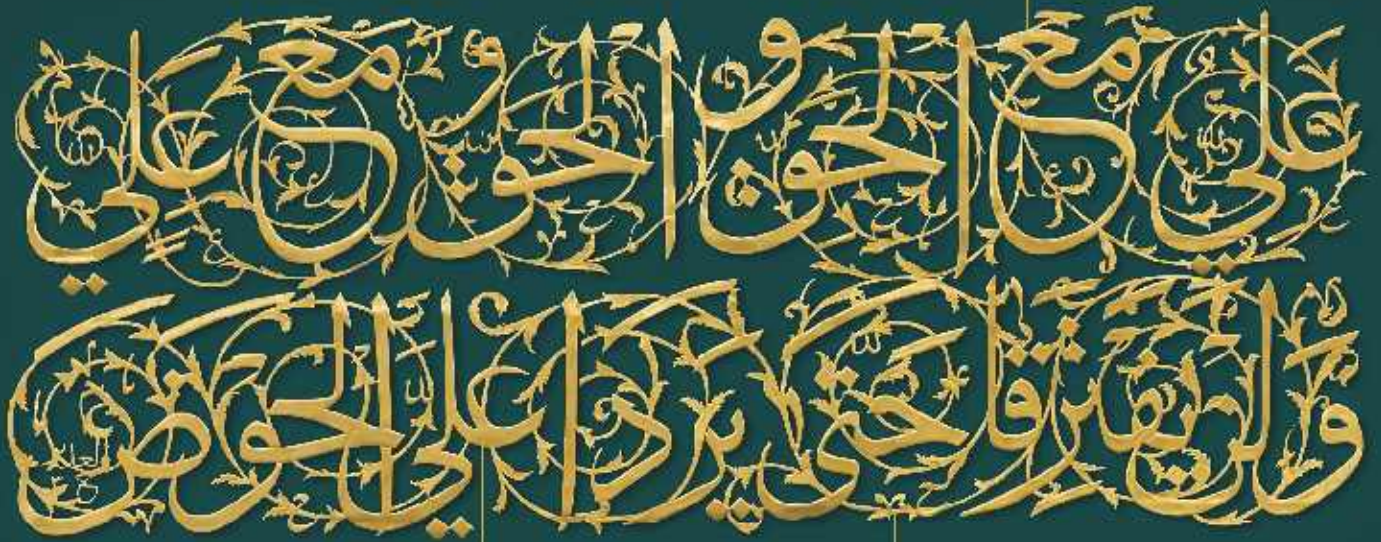 علي مع الحق و الحق مع علي
و لن يفترقا حتى يردا علي الحوض